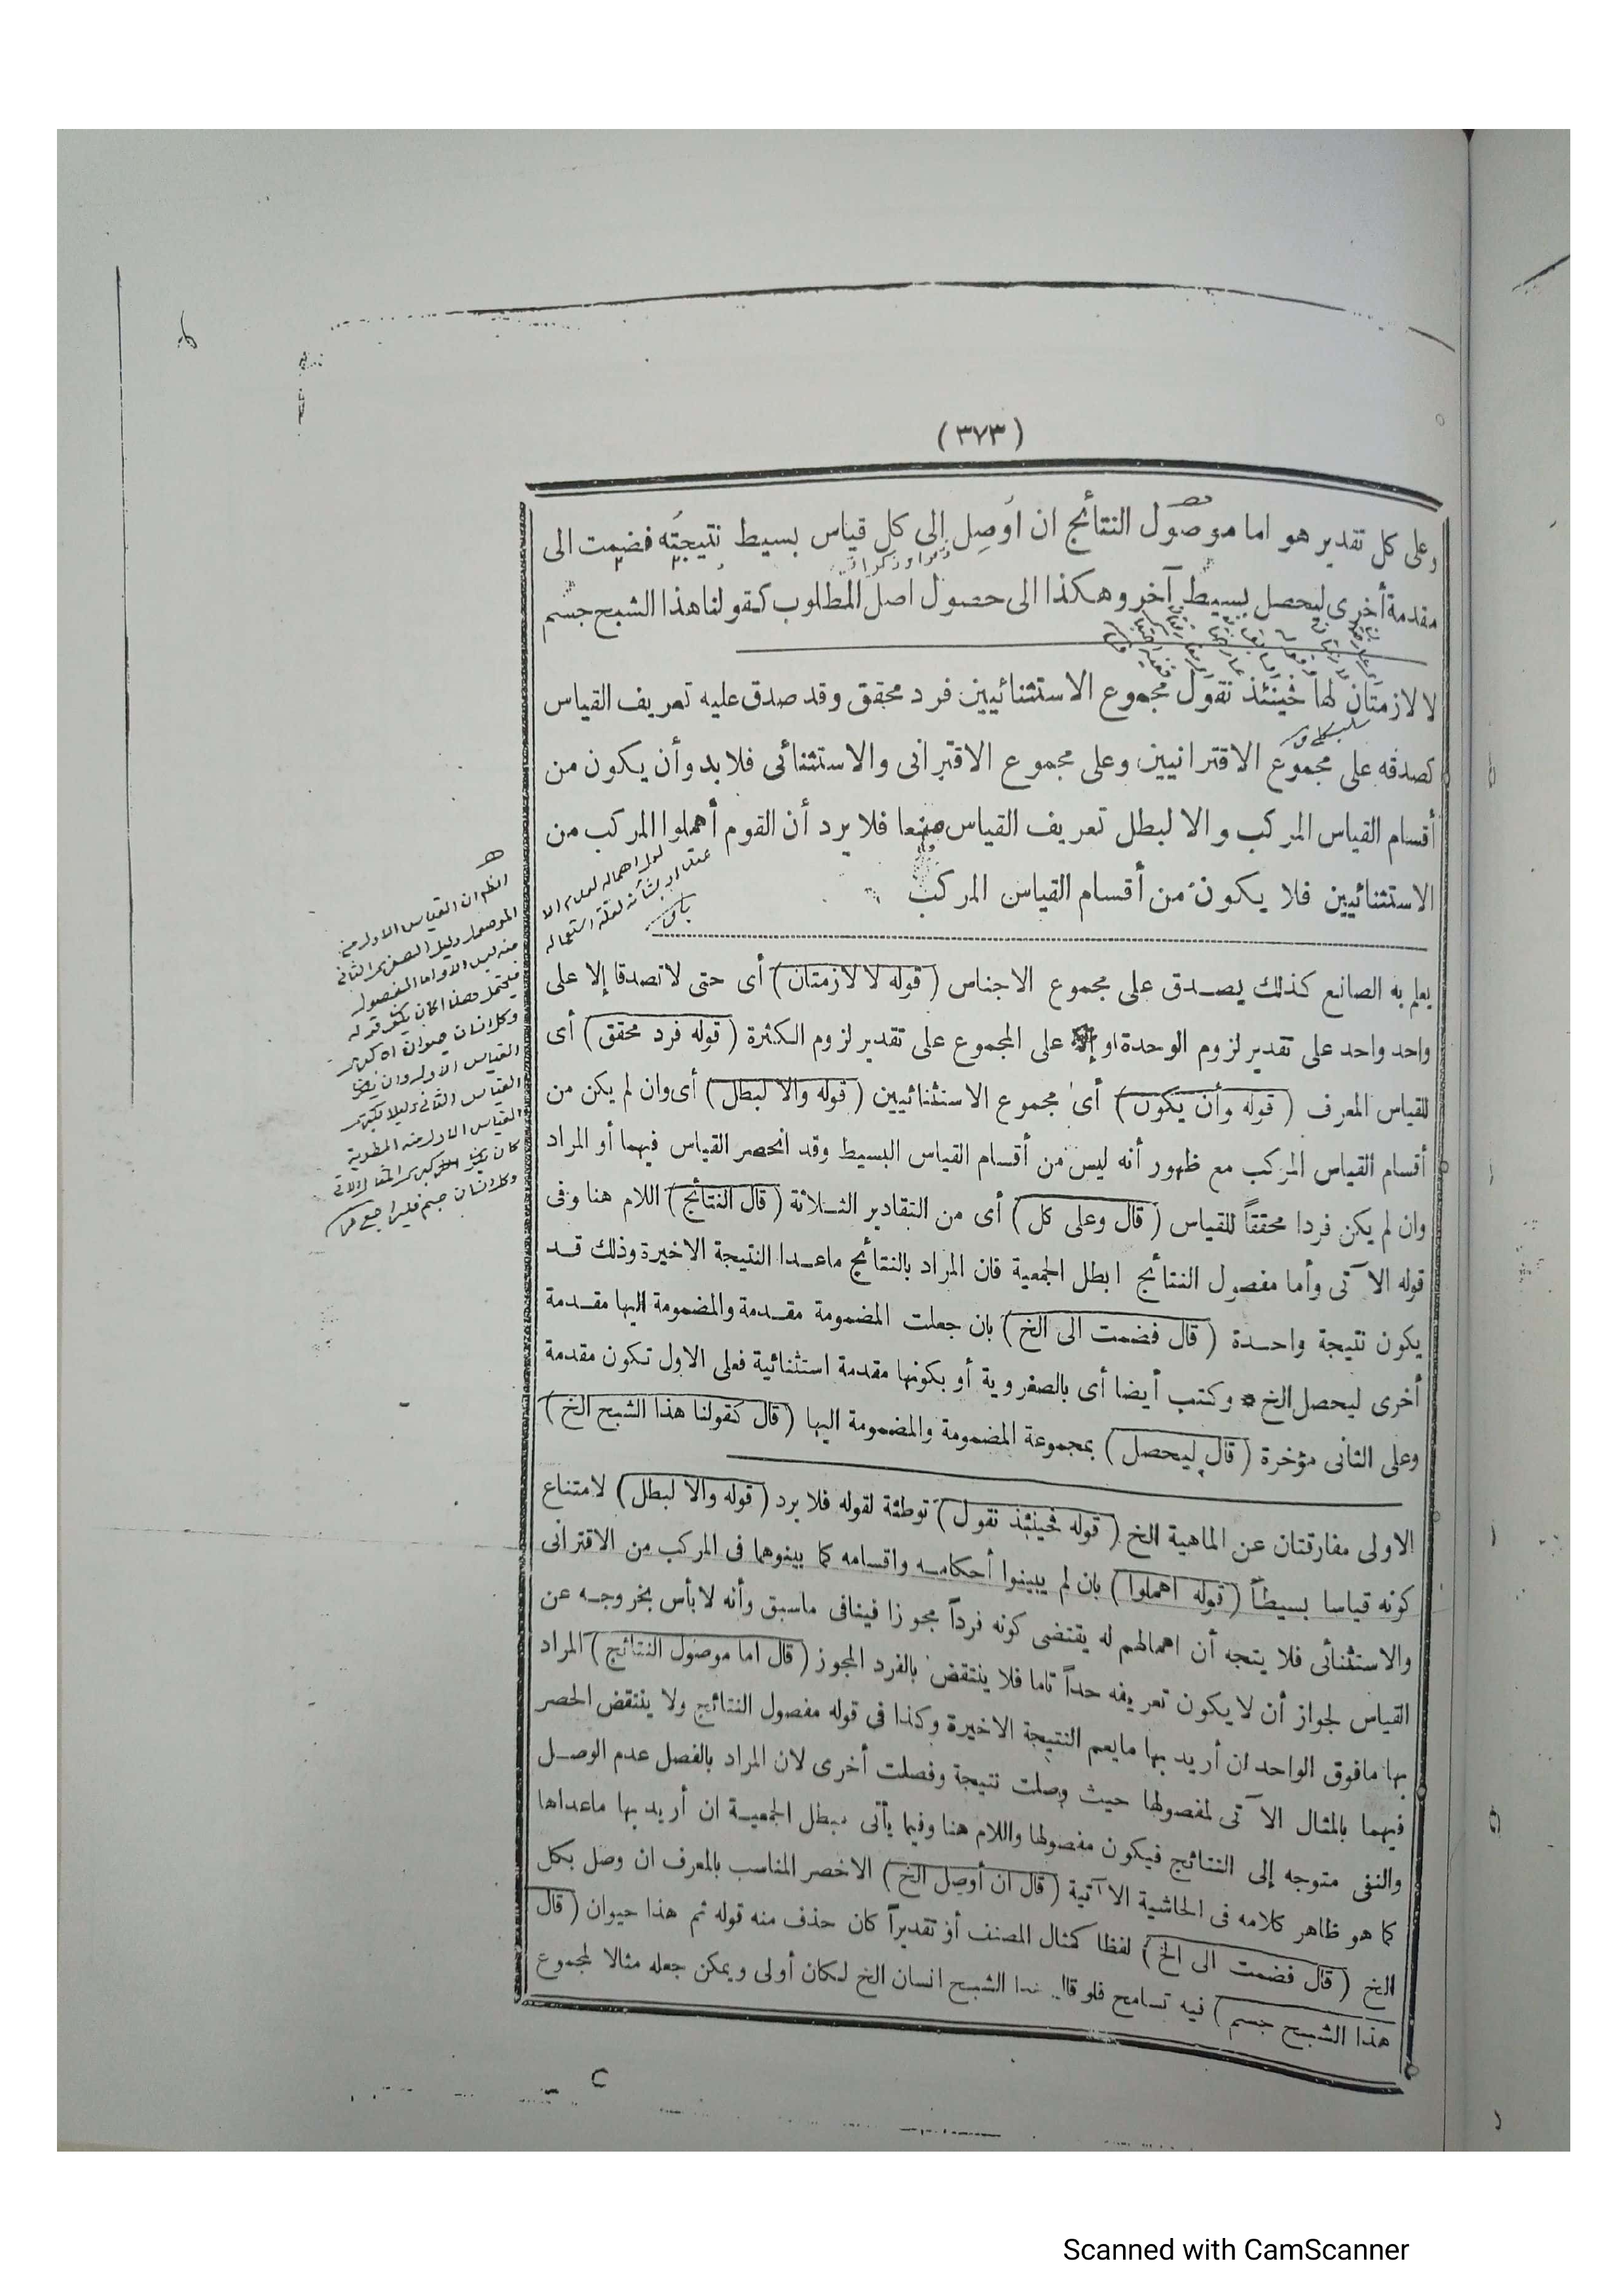 ( ٣٧٣ )
وعلى كل تقدير هو اما موصول النتائج ان اوصل الى كل قياس بسيط نتيجته فضمت الى
مقدمة أخرى ليحصل بسيط آخر وهكذا الى حصول اصل المطلوب كقولنا هذا الشبح جسم
لا لازمتان لها فحينئذ نقول مجموع الاستثنائيين فرد محقق وقد صدق عليه تعريف القياس
كصدقه على مجموع الاقترانيين وعلى مجموع الاقترانى والاستثنائى فلابد وأن يكون من
أقسام القياس المركب والا لبطل تعريف القياس منعا فلا يرد أن القوم أهملوا المركب من
الاستثنائيين فلا يكون من أقسام القياس المركب
يعلم به الصانع كذلك يصدق على مجموع الاجناس ( قوله لا لازمتان ) أى حتى لا تصدقا إلا على
واحد واحد على تقدير لزوم الوحدة او إلا على المجموع على تقدير لزوم الكثرة ( قوله فرد محقق ) أى
للقياس المعرف ( قوله وأن يكون ) أى مجموع الاستثنائيين ( قوله والا لبطل ) أى وان لم يكن من
أقسام القياس المركب مع ظهور أنه ليس من أقسام القياس البسيط وقد انحصر القياس فيهما أو المراد
وان لم يكن فردا محققاً للقياس ( قال وعلى كل ) أى من التقادير الثلاثة ( قال النتائج ) اللام هنا وفى
قوله الآتى وأما مفصول النتائج ابطل الجمعية فان المراد بالنتائج ماعدا النتيجة الاخيرة وذلك قد
يكون نتيجة واحدة ( قال فضمت الى الخ ) بان جعلت المضمومة مقدمة والمضمومة اليها مقدمة
أخرى ليحصل الخ * وكتب أيضا أى بالصغروية أو بكونها مقدمة استثنائية فعلى الاول تكون مقدمة
وعلى الثانى مؤخرة ( قال ليحصل ) بمجموعة المضمومة والمضمومة اليها ( قال كقولنا هذا الشبح الخ )
الاولى مفارقتان عن الماهية الخ ( قوله فحينئذ نقول ) توطئة لقوله فلا يرد ( قوله والا لبطل ) لامتناع
كونه قياسا بسيطاً ( قوله اهملوا ) بان لم يبينوا أحكامه واقسامه كما بينوهما فى المركب من الاقترانى
والاستثنائى فلا يتجه أن اهمالهم له يقتضى كونه فرداً مجوزا فينافى ماسبق وأنه لا بأس بخروجه عن
القياس لجواز أن لا يكون تعريفه حداً تاما فلا ينتقض بالفرد المجوز ( قال اما موصول النتائج ) المراد
بها مافوق الواحد ان أريد بها مايعم النتيجة الاخيرة وكذا فى قوله مفصول النتائج ولا ينتقض الحصر
فيهما بالمثال الآتى لمفصولها حيث وصلت نتيجة وفصلت أخرى لان المراد بالفصل عدم الوصل
والنفى متوجه إلى النتائج فيكون مفصولها واللام هنا وفيما يأتى مبطل الجمعية ان أريد بها ماعداها
كما هو ظاهر كلامه فى الحاشية الآتية ( قال ان أوصل الخ ) الاخصر المناسب بالمعرف ان وصل بكل
الخ ( قال فضمت الى الخ ) لفظا كمثال المصنف أو تقديراً كان حذف منه قوله ثم هذا حيوان ( قال
هذا الشبح جسم ) فيه تسامح فلو قال هذا الشبح انسان الخ لكان أولى ويمكن جعله مثالا لمجموع
Scanned with CamScanner